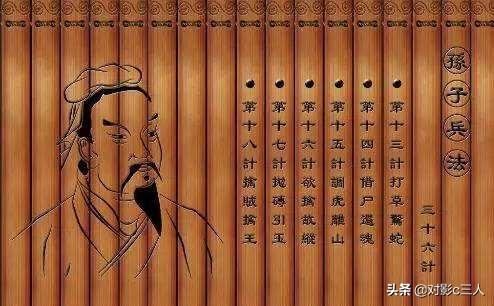 孫子兵法
三十六計
第十三計打草驚蛇
第十四計借尸還魂
第十五計調虎離山
第十六計欲擒故縱
第十七計拋磚引玉
第十八計擒賊擒王
头条 @对影c三人